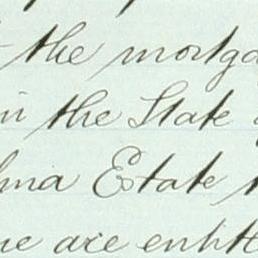 the mortga
in the State
ma Estate
are entitt